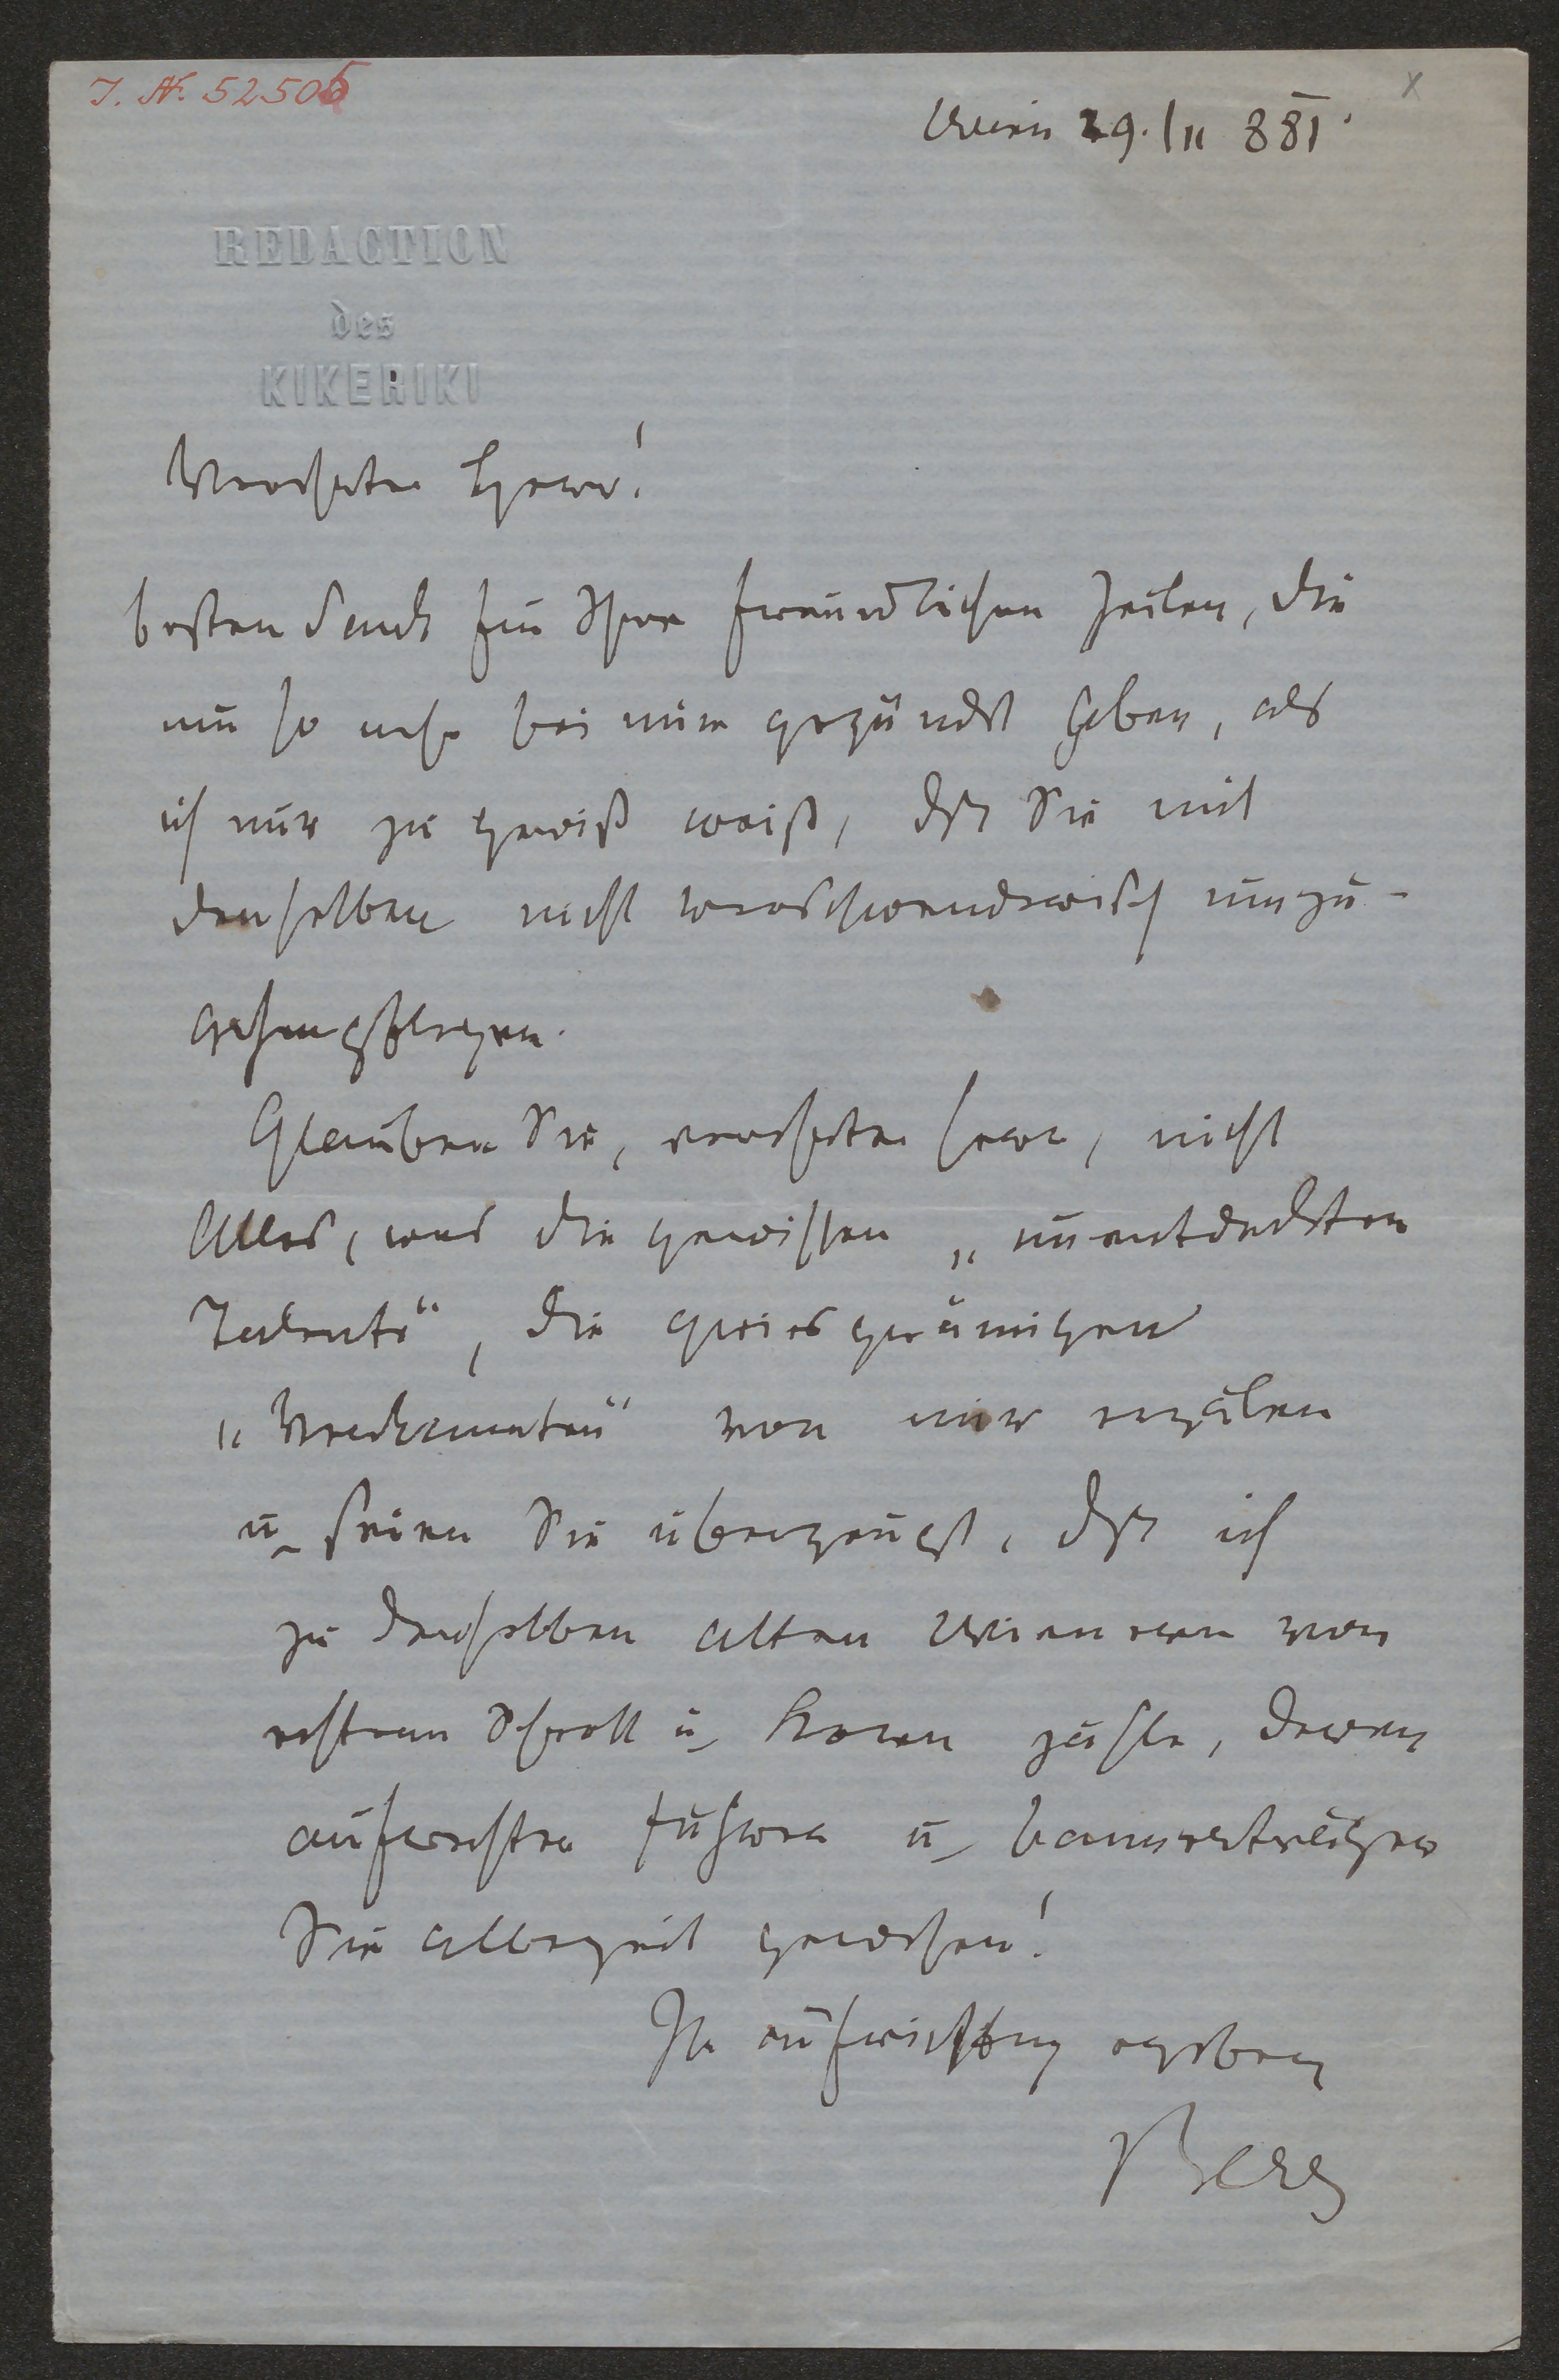 J. N. 52505
Wien 29./11 881.
REDACTION
des
KIKERIKI
Verehrter Herr!
besten Dank für Ihre freundlichen Zeilen, die
um so mehr bei mir gezündet haben, als
ich nur zu gewiß weiß, daß Sie mit
denselben nicht verschwenderisch umzu-
gehen pflegen.
Glauben Sie, verehrter Herr, nicht
Alles, was die gewissen „unentdeckten
Talente“, die griesgrämigen
„Verkannten“ von mir erzälen
u. seien Sie überzeugt, daß ich
zu denselben alten Wienern von
echtem Schrott u. Korn zähle, deren
aufrechter Führer u. Bannerträger
Sie allezeit gewesen!
Ihr aufrichtig ergebener
Berg